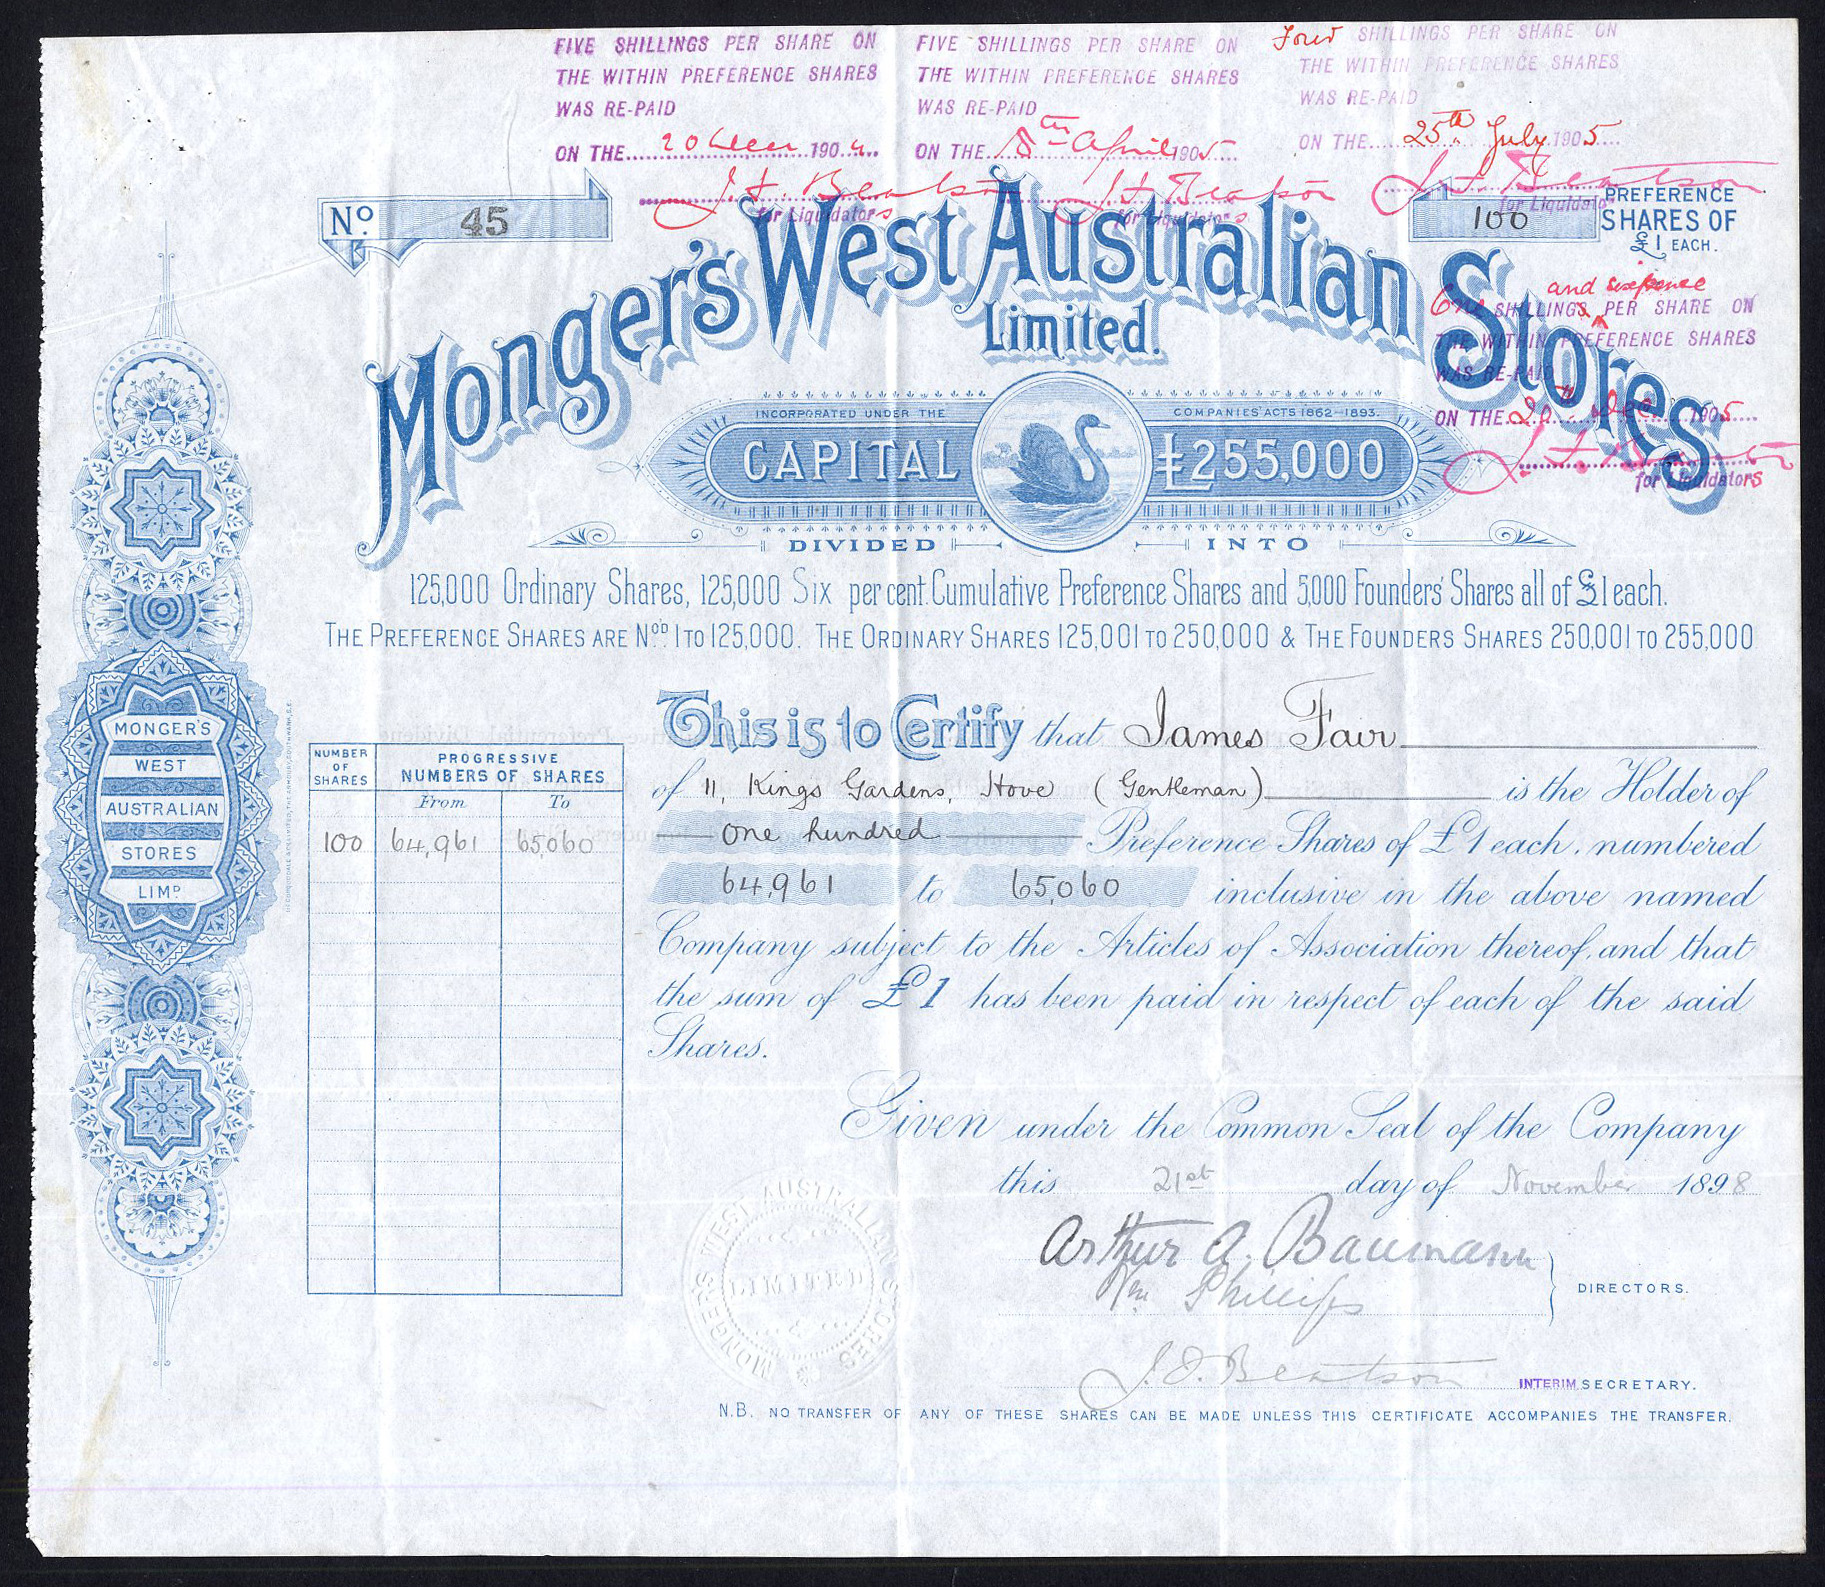 FIVE SHILLINGS PER SHARE ON
THE WITHIN PREFERENCE SHARES
WAS RE-PAID
ON THE 20 Decr 1904
J. F. Beatson
for Liquidators
FIVE SHILLINGS PER SHARE ON
THE WITHIN PREFERENCE SHARES
WAS RE-PAID
ON THE April 1905
J F Beatson
for Liquidators
Four SHILLINGS PER SHARE ON
THE WITHIN PREFERENCE SHARES
WAS RE-PAID
ON THE 25th July 1905
J. F. Beatson
for Liquidators
No. 45
100 PREFERENCE
SHARES OF
£1 EACH.
and sixpence
One SHILLINGS PER SHARE ON
THE WITHIN PREFERENCE SHARES
WAS RE-PAID
ON THE 20th Dec 1905
J. F. Beatson
for Liquidators
Monger's West Australian Stores
Limited.
INCORPORATED UNDER THE COMPANIES' ACTS 1862-1893.
CAPITAL £255,000
DIVIDED INTO
125,000 Ordinary Shares, 125,000 Six per cent. Cumulative Preference Shares and 5,000 Founders' Shares all of £1 each.
THE PREFERENCE SHARES ARE Nos. 1 TO 125,000. THE ORDINARY SHARES 125,001 TO 250,000 & THE FOUNDERS SHARES 250,001 TO 255,000
MONGER'S
WEST
AUSTRALIAN
STORES
LIMD.
NUMBER OF SHARES
PROGRESSIVE NUMBERS OF SHARES
From To
100 64,961 65,060
This is to Certify that James Fair
of 11, Kings Gardens, Hove (Gentleman) is the Holder of
One hundred Preference Shares of £1 each, numbered
64,961 to 65,060 inclusive in the above named
Company subject to the Articles of Association thereof, and that
the sum of £1 has been paid in respect of each of the said
Shares.
Given under the Common Seal of the Company
this 21st day of November 1898
Arthur A. Baumann
Wm Phillips
DIRECTORS.
J. F. Beatson
INTERIM SECRETARY.
MONGER'S WEST AUSTRALIAN STORES
LIMITED
N.B. NO TRANSFER OF ANY OF THESE SHARES CAN BE MADE UNLESS THIS CERTIFICATE ACCOMPANIES THE TRANSFER.